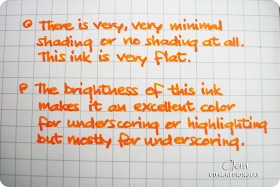 There is very, very minimal
shading or no shading at all.
This ink is very flat.
The brightness of this ink
makes it an excellent color
for underscoring or highlighting
but mostly for underscoring.